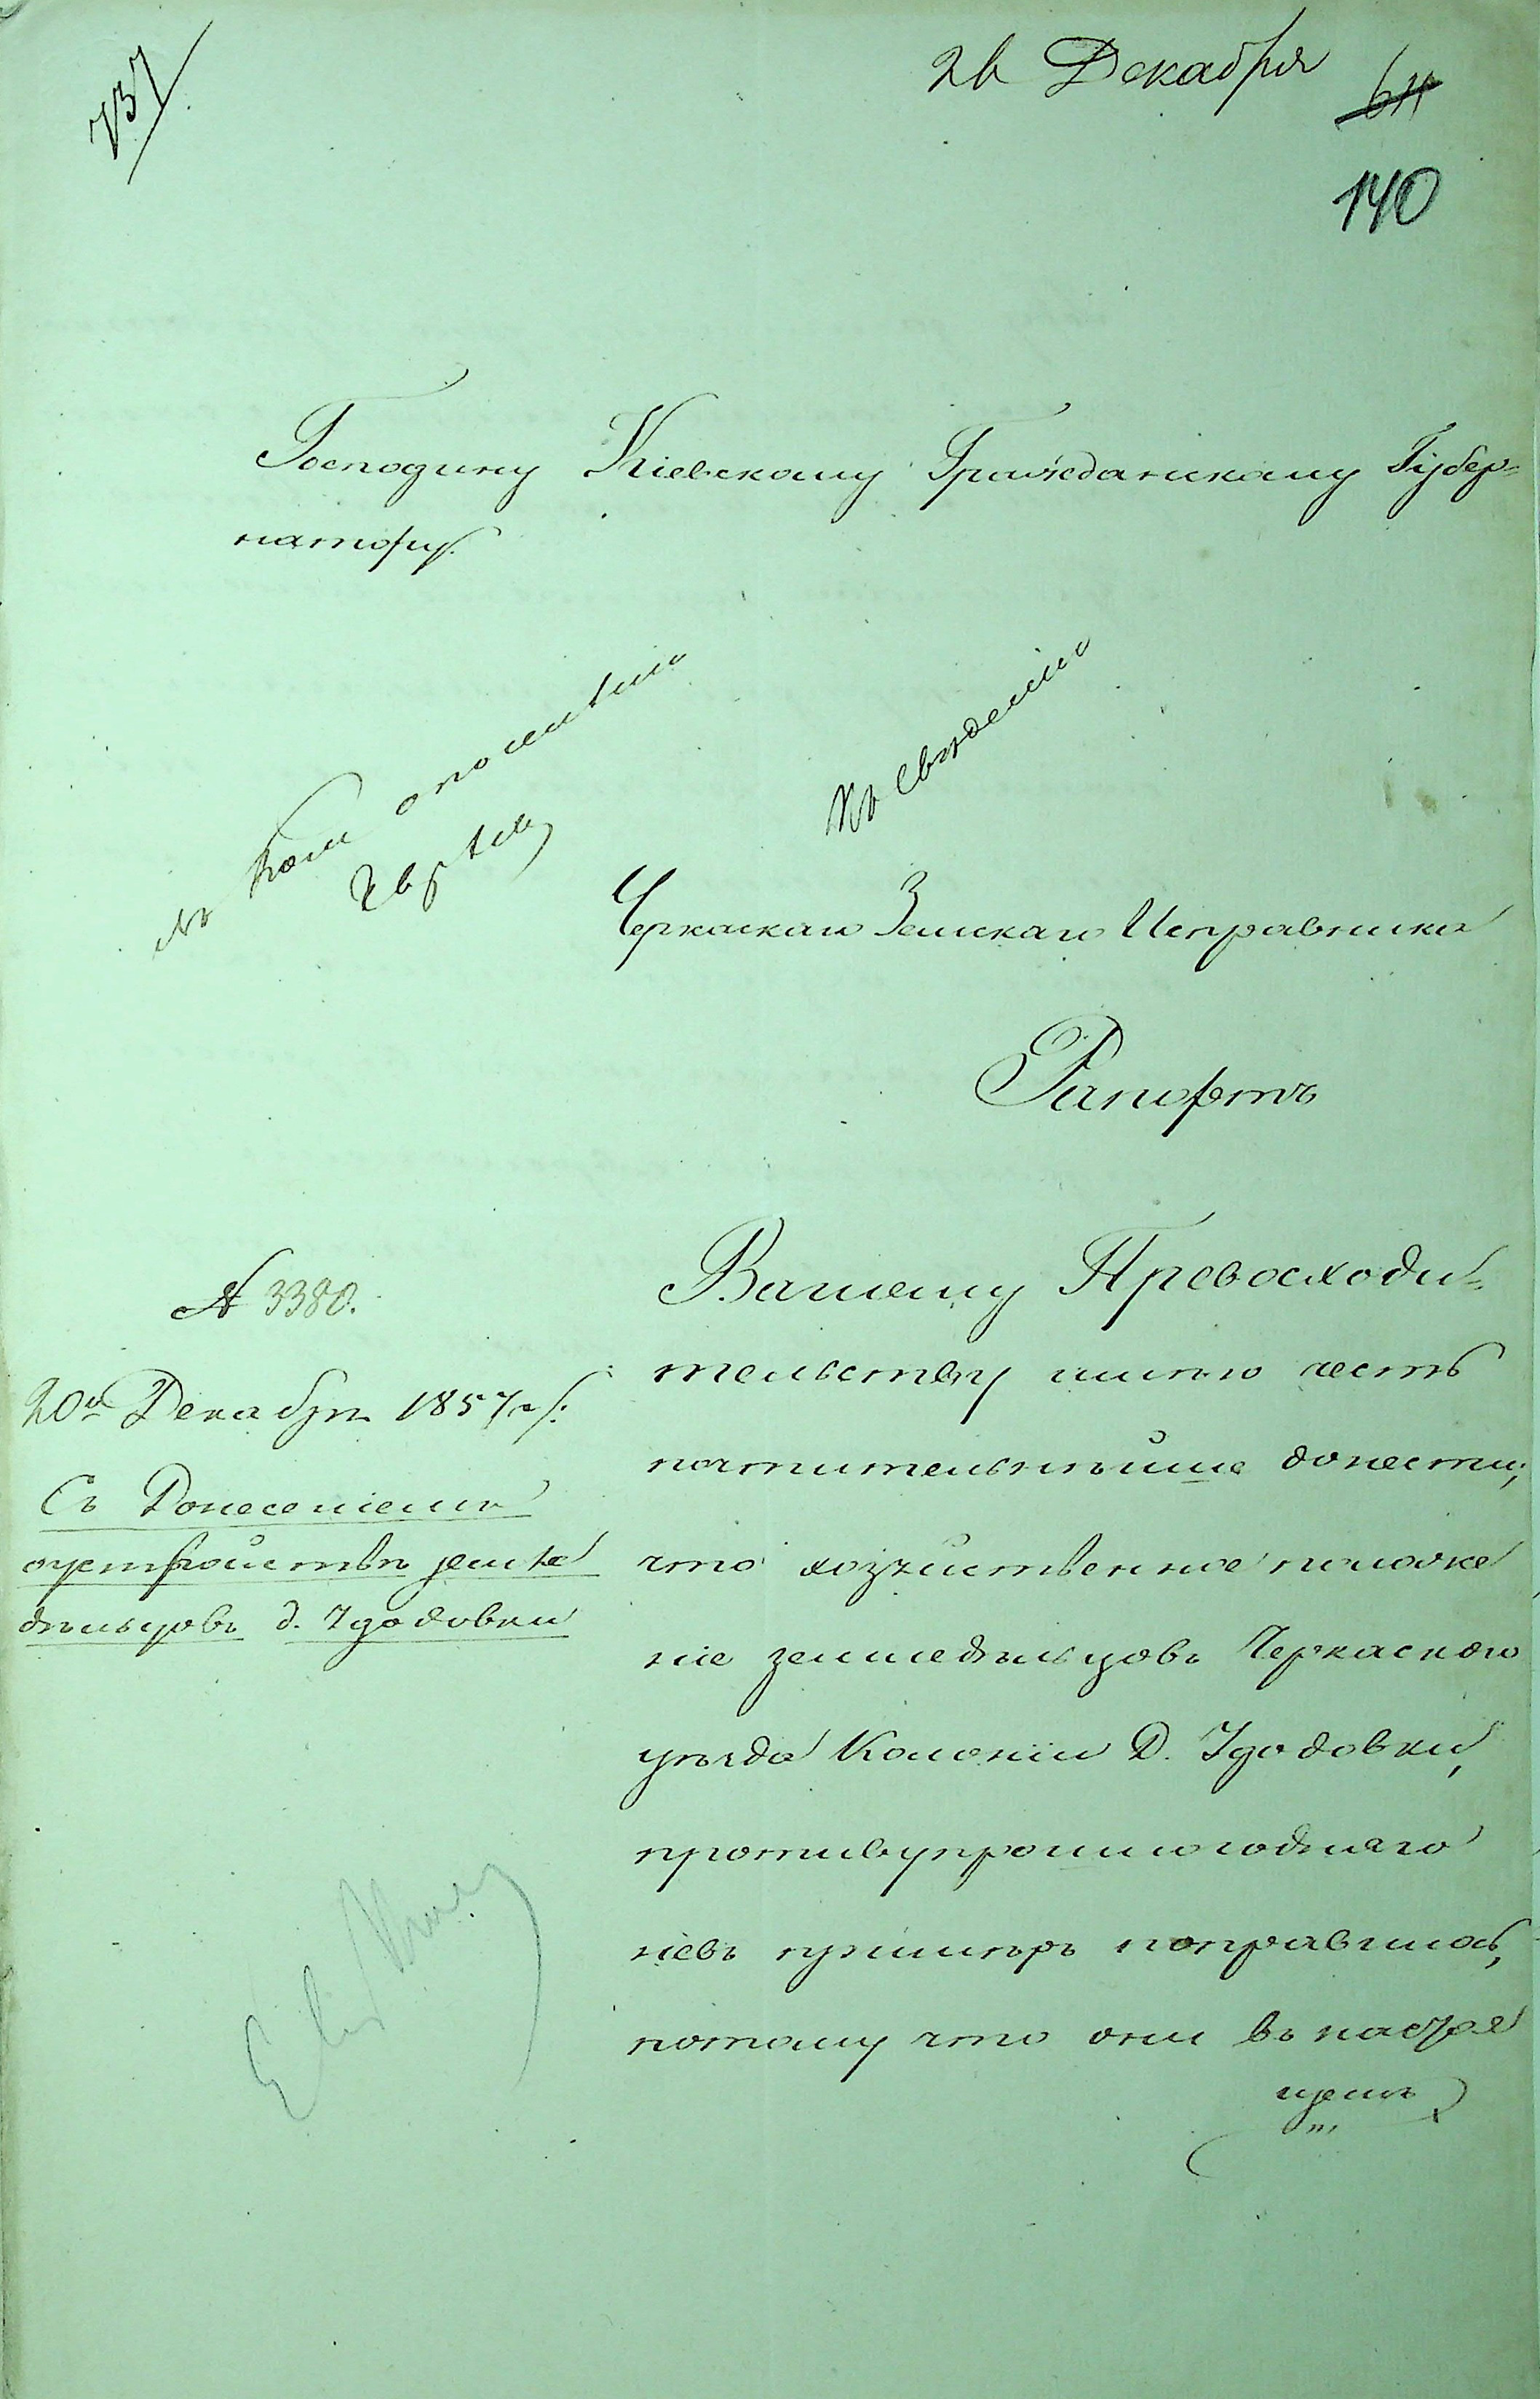 737
26 Декабря
64
140
Господину Кіевскому Гражданскому Губер-
натору.
Къ свѣденію
Черкаскаго Земскаго Исправника
Рапортъ
№ 3380.
20го Декабря 1857 г.
Съ Донесеніемъ
о устройствѣ земле
дѣльцовъ д.
Вашему Превосходи-
тельству имѣю честь
почтительнѣйше донести,
что хозяйственное положе
ніе земледѣльцовъ Черкаского
уѣзда Колоніи Д.
противу прошлогодняго
невъ примѣръ поправилось,
потому что они въ настоя
щемъ